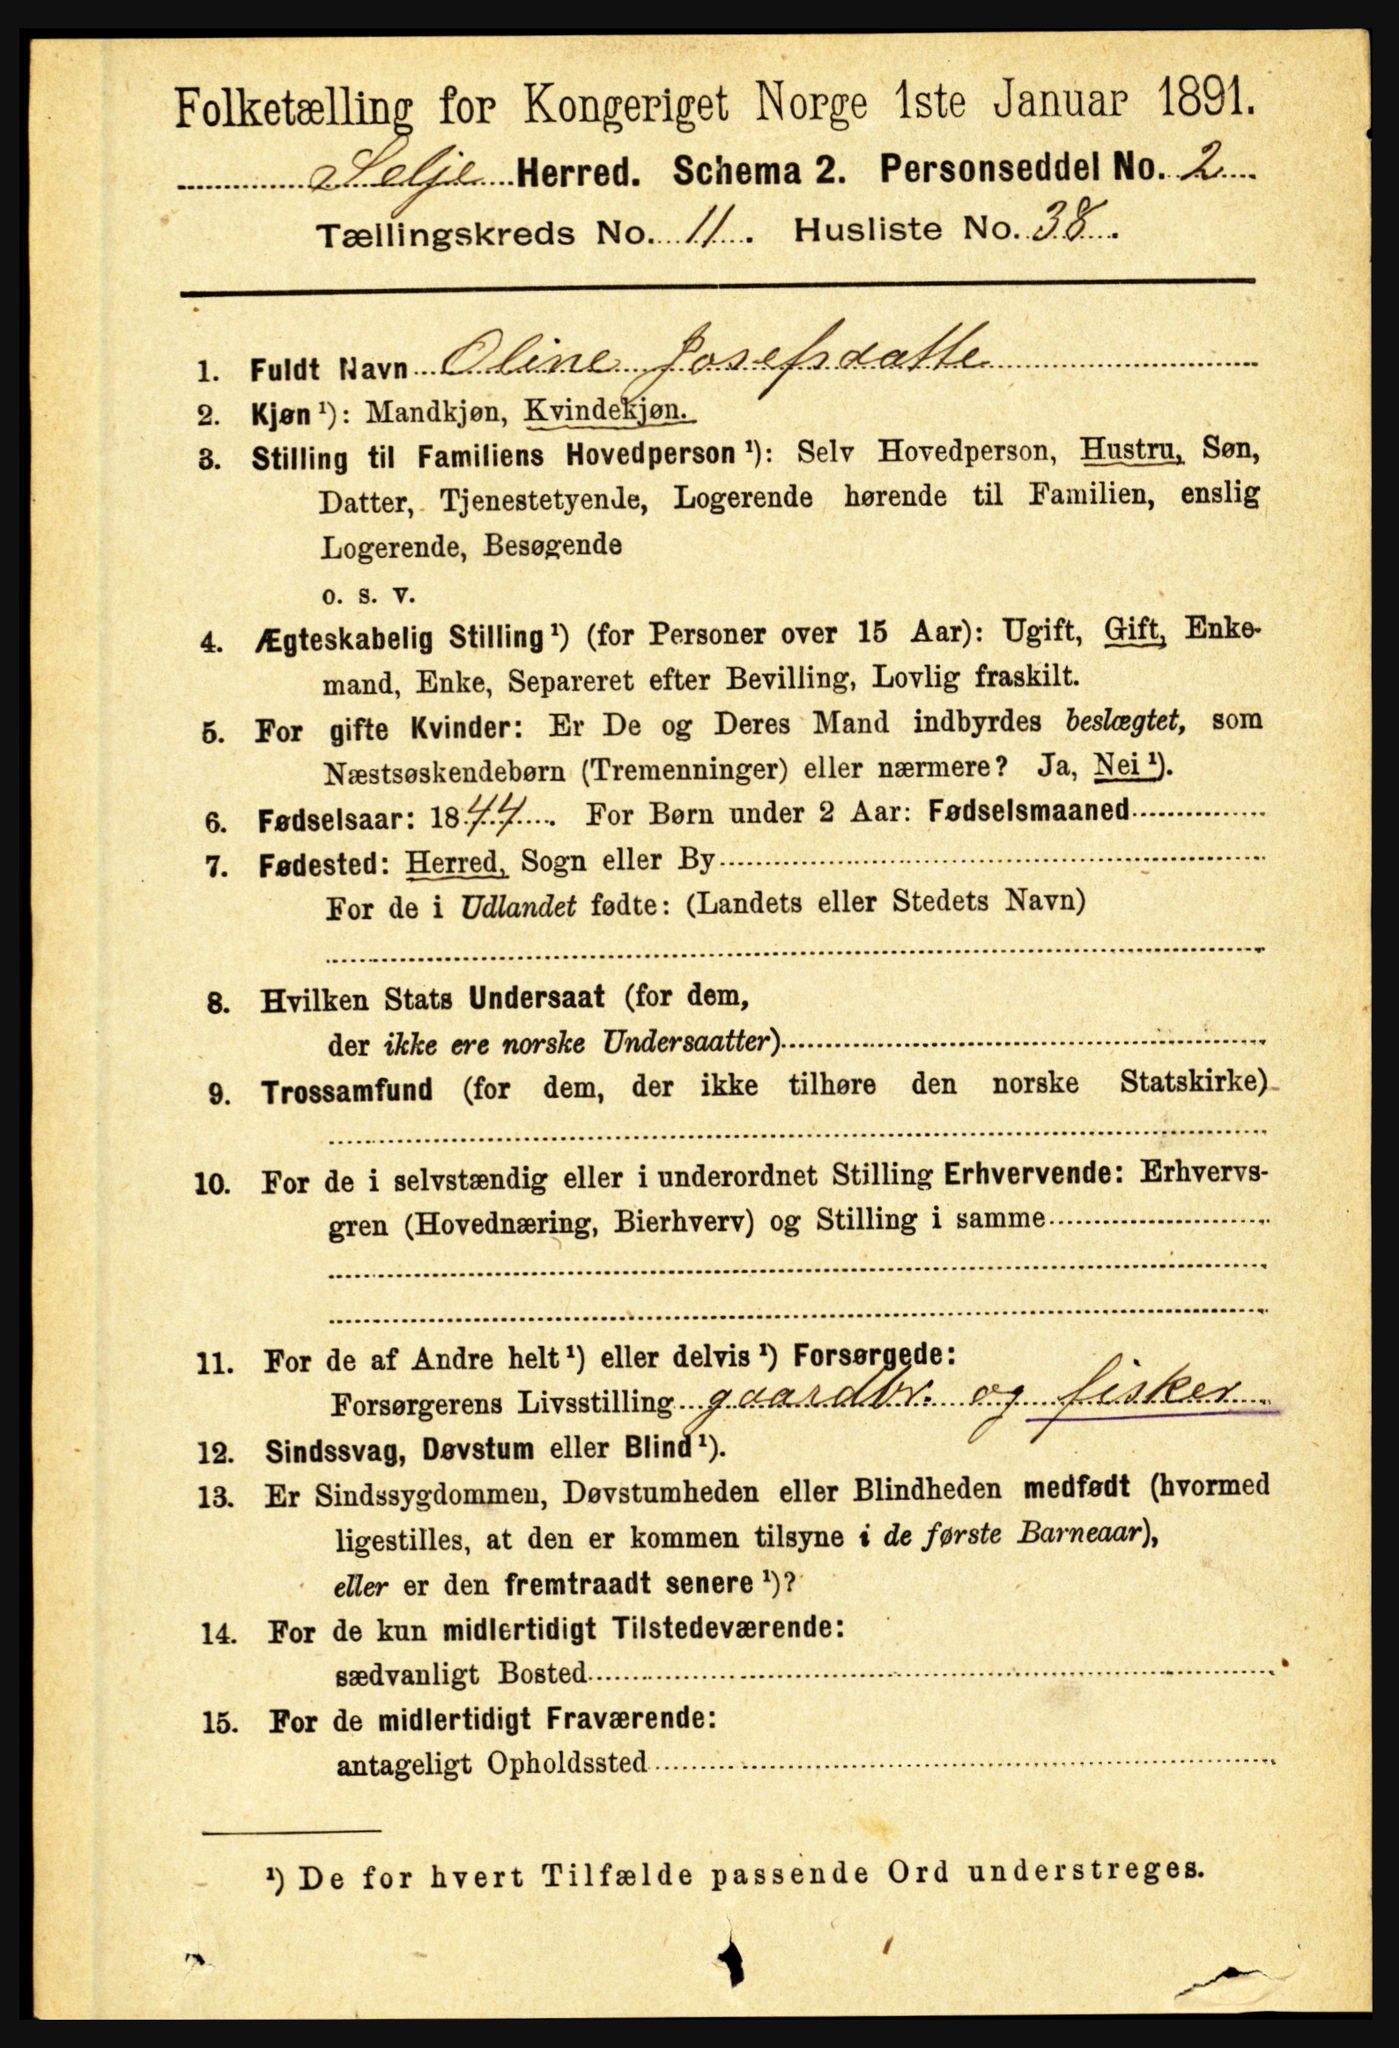 Folketælling for Kongeriget Norge 1ste Januar 1891.
Selje Herred. Schema 2. Personseddel No. 2
Tællingskreds No. 11. Husliste No. 38.
1. Fuldt Navn Oline Josefsdatte
2. Kjøn¹): Mandkjøn, Kvindekjøn.
3. Stilling til Familiens Hovedperson¹): Selv Hovedperson, Hustru, Søn,
Datter, Tjenestetyende, Logerende hørende til Familien, enslig
Logerende, Besøgende
o. s. v.
4. Ægteskabelig Stilling¹) (for Personer over 15 Aar): Ugift, Gift, Enke-
mand, Enke, Separeret efter Bevilling, Lovlig fraskilt.
5. For gifte Kvinder: Er De og Deres Mand indbyrdes beslægtet, som
Næstsøskendebørn (Tremenninger) eller nærmere? Ja, Nei¹).
6. Fødselsaar: 1844. For Børn under 2 Aar: Fødselsmaaned
7. Fødested: Herred, Sogn eller By
For de i Udlandet fødte: (Landets eller Stedets Navn)
8. Hvilken Stats Undersaat (for dem,
der ikke ere norske Undersaatter)
9. Trossamfund (for dem, der ikke tilhøre den norske Statskirke)
10. For de i selvstændig eller i underordnet Stilling Erhvervende: Erhvervs-
gren (Hovednæring, Bierhverv) og Stilling i samme
11. For de af Andre helt¹) eller delvis¹) Forsørgede:
Forsørgerens Livsstilling gaardbr. og fisker
12. Sindssvag, Døvstum eller Blind¹).
13. Er Sindssygdommen, Døvstumheden eller Blindheden medfødt (hvormed
ligestilles, at den er kommen tilsyne i de første Barneaar),
eller er den fremtraadt senere¹)?
14. For de kun midlertidigt Tilstedeværende:
sædvanligt Bosted
15. For de midlertidigt Fraværende:
antageligt Opholdssted
¹) De for hvert Tilfælde passende Ord understreges.